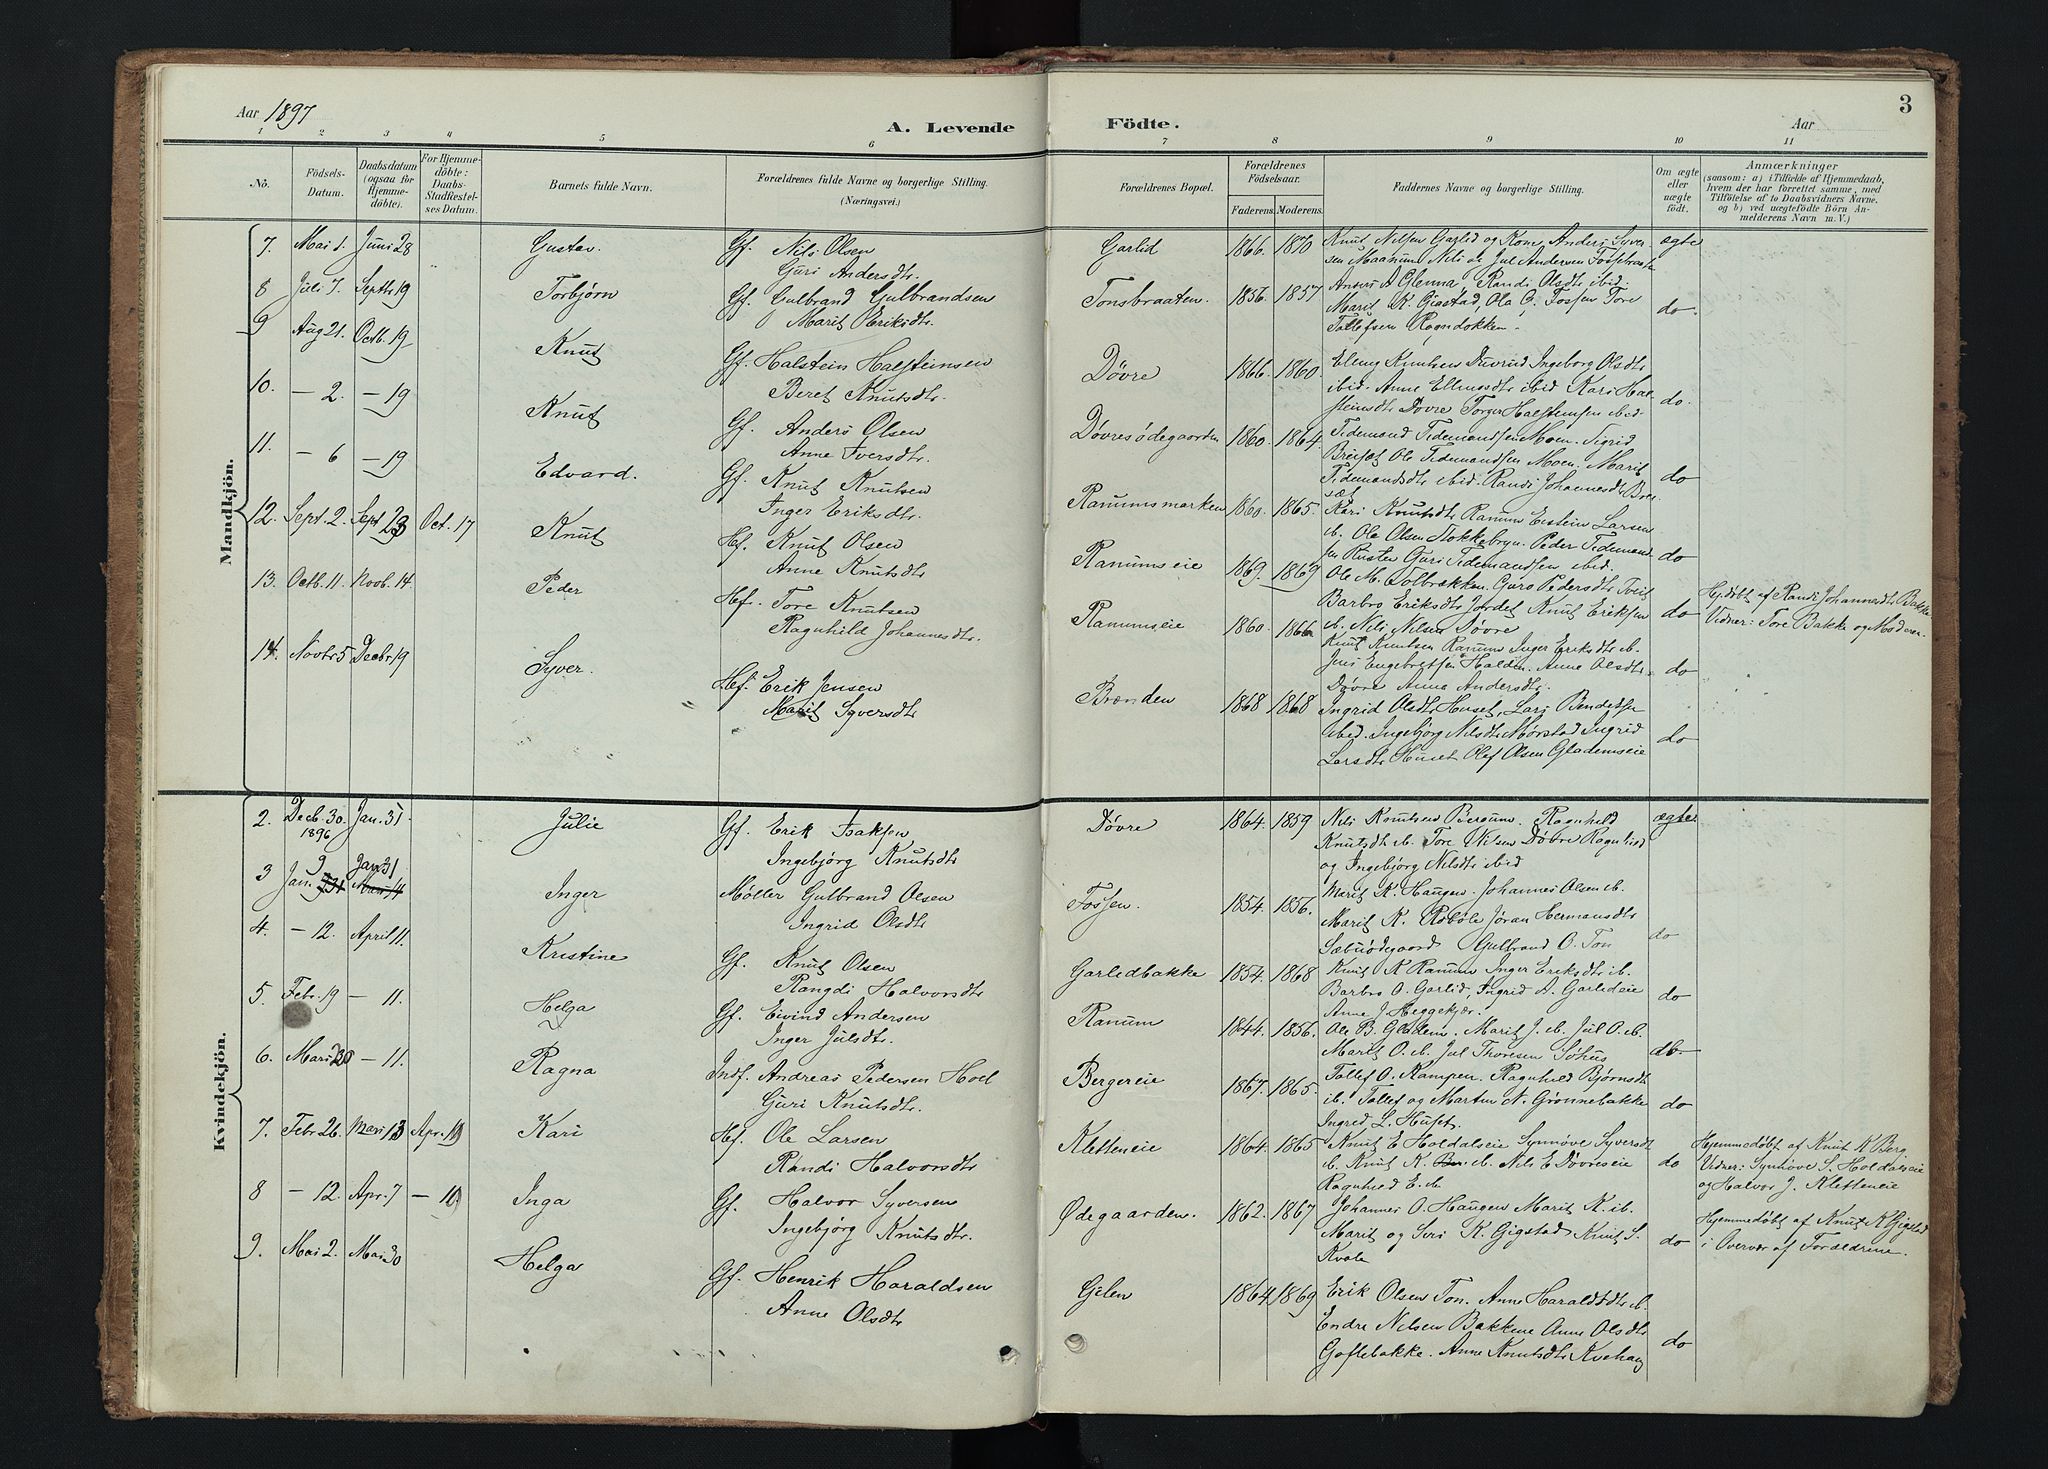 Aar 1897
A. Levende Födte.
Aar
3
1 2 3 4 5 6 7 8 9 10 11
No.
Födsels-Datum.
Daabsdatum (ogsaa for Hjemme-döbte).
For Hjemme-döbte: Daabs-Stadfæstel-ses Datum.
Barnets fulde Navn.
Forældrenes fulde Navne og borgerlige Stilling. (Næringsvei.)
Forældrenes Bopæl.
Forældrenes Födselsaar.
Faderens. Moderens.
Faddernes Navne og borgerlige Stilling.
Om ægte eller uægte födt.
Anmærkninger
(saasom: a) i Tilfælde af Hjemmedaab, hvem der har forrettet samme, med Tilföielse af to Daabsvidners Navne. og b) ved uægtefödte Börn An-melderens Navn m. V.)
Mandkjön.
7. Mai 1. Juni 28 Gustav. Gf. Nils Olsen
Guri Andersdtr. Garlid 1866. 1870 Knut Nilsen Garlid og Kone Anders Syver-
sen Maanum Nils og Jul Andersen Fossebraate ægte
8 Juli 7. Septbr 19 Torbjörn Gf. Gulbrand Gulbrandsen
Marit Eriksdtr. Tonsbraaten. 1856. 1857 A Glenna, Randi Olsdtr ibid.
Marit K. Gigstad, Ola G. Fossen Tore
Tollefsen Rogndokken. do.
9 Aug 21. Octb. 19 Knut Gf. Halstein Halsteinsen
Beret Knutsdtr. Dövre 1866. 1860. Elling Knutsen Ingeborg Olsdtr
ibid. Anne Ellingsdtr ibid Kari Hal-
steinsdtr Dövre Torger Halsteinsen ibid. do.
10. — 2. — 19 Knut Gf. Anders Olsen
Anne Iversdtr. Dövresödegaarden 1860. 1864. Tidemand Tidemandsen Moen. Sigrid
Breiset Ole Tidemandsen Moen. Marit
Tidemandsdtr ibid. Randi Johannesdtr Brei-
set do
11. — 6 — 19 Edvard. Gf. Knut Knutsen
Inger Eriksdtr. Ranumsmarken 1860. 1865. Kari Knutsdtr Ranum Eistein Larsen
ib. Ole Olsen Stokkebryn. Peder Tidemand-
sen Rusten Guri Tidemandsen ibid. do
12. Sept. 2. Sept 23 Oct. 17 Knut Hf. Knut Olsen
Anne Knutsdtr Ranumseie 1869. 1869 Ole M. Tolbrækken. Guro Pedersdtr Tveit
Barbro Eriksdtr Jordet Knut Eriksen
ib. Nils Nilsen Dövre do Hj.döbt af Randi Johannesdtr Bakke
Vidner: Tore Bakke og Moderen.
13. Octb. 11. Novb. 14 Peder Hf. Tore Knutsen
Ragnhild Johannesdtr. Ranumseie 1860. 1866 Knut Knutsen Ranum Inger Eriksdtr ib.
Jens Engebretsen Halden. Anne Olsdtr
Dövre Anne Andersdtr. do
14. Novbr 5 Decbr 19 Syver. Hf. Erik Jensen
Marit Syversdtr Brænden 1868 1868 Ingrid Olsdtr Huset, Lars Bendetsen
ibid. Ingebjörg Nilsdtr Mörstad Ingrid
Larsdtr Huset Olef Olsen Glademseie do
Kvindekjön.
2. Decb. 30. 1896 Jan. 31. Julie Gf. Erik Isaksen
Ingebjörg Knutsdtr Dövre 1864. 1859 Nils Knutsen Bergum. Ragnhild
Knutsdtr ib. Tore Nilsen Dövre Ragnhild
og Ingebjörg Nilsdtr ibid ægte
3 Jan. 9 Jan 31 Inger Möller Gulbrand Olsen
Ingrid Olsdtr Fossen. 1854. 1856. Marit K. Haugen. Johannes Olsen ib.
Marit K. Röböle Jöran Hermansdtr
Sæbuödegaard Gulbrand O. Ton do
4. — 12. April 11. Kristine Gf. Knut Olsen
Rangdi Halvorsdtr Garlidbakke 1854. 1868 Knut K Ranum Inger Eriksdtr ib.
Barbro O. Garlid, Ingrid A. Garlideie
Anne J. Heggekjær. do
5. Febr. 19 — 11. Helga Gf. Eivind Andersen
Inger Julsdtr. Ranum 1844. 1856. Ole B. Gladem. Marit J. ib. Jul O. ib.
Marit O. ib. Jul Thoresen Söhus do
6. Mars 20 — 11. Ragna Indf. Andreas Pedersen Hoel
Guri Knutsdtr. Bergereie 1867. 1865. Tollef O. Kampen. Ragnhild Björnsdtr
ib. Tollef og Marten N. Grönnebakke
Ingrid L. Huset. do
7. Febr 26. Mars 13 Apr. 19 Kari Hf. Ole Larsen
Randi Halvorsdtr Kletteneie 1864. 1865 Knut E Holdalseie Synnöve Syversdtr
ib. Knut K. ib. Nils E Dövreseie
Ragnhild E. ib. do Hjemmedöbt af Knut K Berg
Vidner: Synnöve S. Holdalseie
og Halvor J. Kletteneie
8 — 12. Apr. 7 — 19 Inga Gf. Halvor Syversen
Ingebjörg Knutsdtr. Ødegaarden. 1862. 1867 Johannes O. Haugen Marit K. ib.
Marit og Siri K. Gigstad Knut S.
Kvale do Hjemmedöbt af Knut K Gigstad
i Overvær af Forældrene.
9. Mai 2. Mai 30 Helga Gf. Henrik Haraldsen
Anne Olsdtr Gilen 1864 1869 Erik Olsen Ton. Anne Haraldsdtr ib.
Endre Nilsen Bakkene Anne Olsdtr
Goflebakke. Anne Knutsdtr Kvehaug do